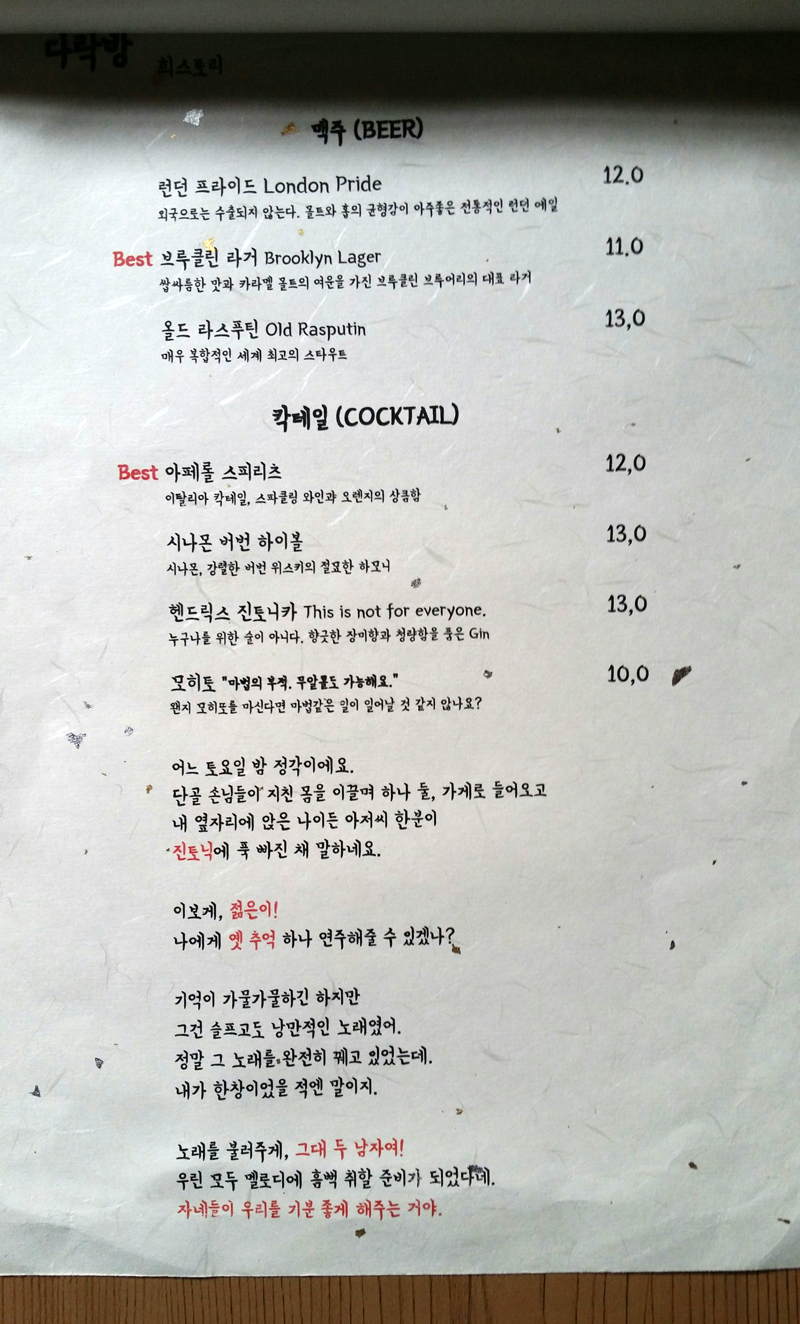 다락방 희스토리
맥주 (BEER)
런던 프라이드 London Pride 12.0
외국으로는 수출되지 않는다. 몰트와 홉의 균형감이 아주좋은 전통적인 런던 에일
Best 브루클린 라거 Brooklyn Lager 11.0
쌉싸름한 맛과 카라멜 몰트의 여운을 가진 브루클린 브루어리의 대표 라거
올드 라스푸틴 Old Rasputin 13,0
매우 복합적인 세계 최고의 스타우트
칵테일 (COCKTAIL)
Best 아페롤 스피리츠 12,0
이탈리아 칵테일, 스파클링 와인과 오렌지의 상큼함
시나몬 버번 하이볼 13,0
시나몬, 강렬한 버번 위스키의 절묘한 하모니
헨드릭스 진토니카 This is not for everyone. 13,0
누구나를 위한 술이 아니다. 향긋한 장미향과 청량함을 품은 Gin
모히토 "마법의 부적. 무알콜도 가능해요." 10,0
왠지 모히또를 마신다면 마법같은 일이 일어날 것 같지 않나요?
어느 토요일 밤 정각이에요.
단골 손님들이 지친 몸을 이끌며 하나 둘, 가게로 들어오고
내 옆자리에 앉은 나이든 아저씨 한분이
진토닉에 푹 빠진 채 말하네요.
이보게, 젊은이!
나에게 옛 추억 하나 연주해줄 수 있겠나?
기억이 가물가물하긴 하지만
그건 슬프고도 낭만적인 노래였어.
정말 그 노래를 완전히 꿰고 있었는데.
내가 한창이었을 적엔 말이지.
노래를 불러주게, 그대 두 남자여!
우린 모두 멜로디에 흠뻑 취할 준비가 되었다네.
자네들이 우리를 기분 좋게 해주는 거야.